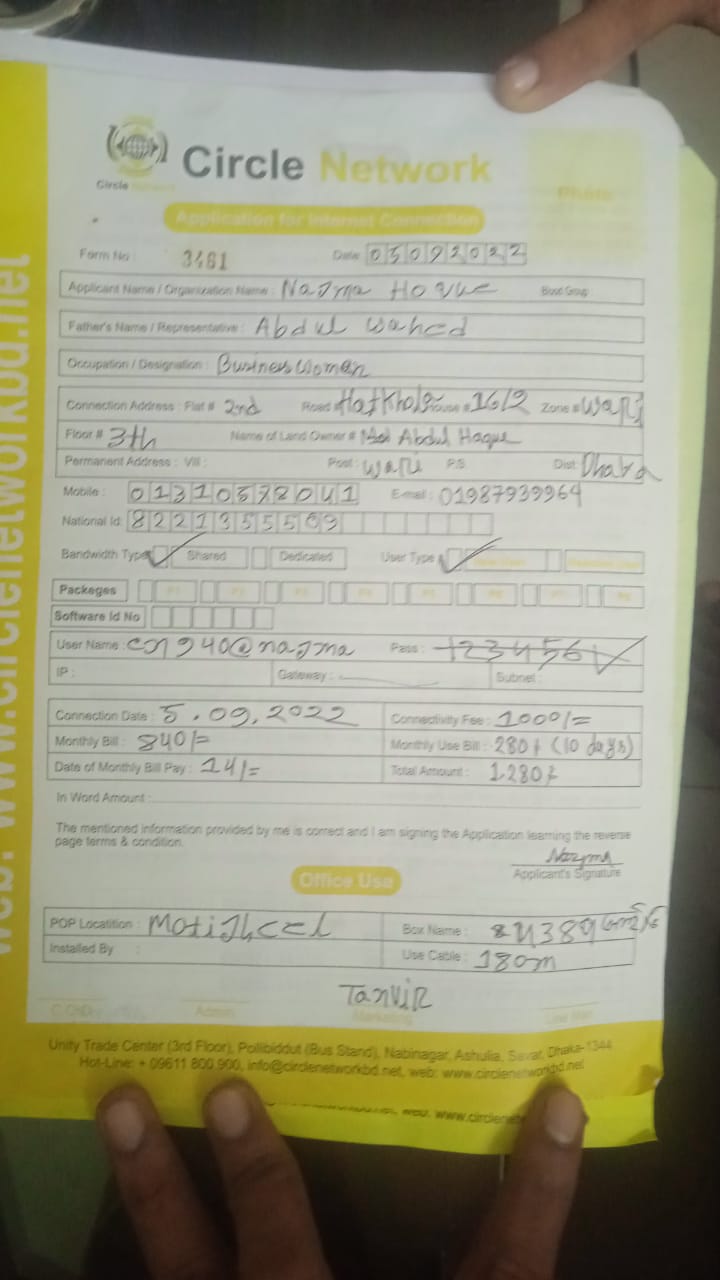 Circle Network
Circle Network
Photo
Application for Internet Connection
Form No : 3461 Date: 05092022
Applicant Name / Organization Name : Nazma Hoque Blood Group :
Father's Name / Representative : Abdul Wahed
Occupation / Designation : Business Woman
Connection Address : Flat # 2nd Road # Hatkhola House # 16/2 Zone # Wari
Floor # 3th Name of Land Owner # Md Abdul Haque
Permanent Address : Vill : Post : Wari P.S Dist: Dhaka
Mobile : E-mail : 01987939964
National Id: 8221355569
Bandwidth Type Shared Dedicated User Type
Packeges P1 P2 P3 P4 P5 P6 P7 P8
Software Id No
User Name : Pass : 123456
IP : Gateway : Subnet :
Connection Date : 5.09.2022 Connectivity Fee : 1000/=
Monthly Bill : 840/= Monthly Use Bill : 280/- (10 days)
Date of Monthly Bill Pay : 14/= Total Amount : 1280/-
In Word Amount :
The mentioned information provided by me is correct and I am signing the Application learning the reverse
page terms & condition.
Nazma
Applicant's Signature
Office Use
POP Locatition : Motijheel Box Name :
Installed By : Use Cable : 180m
Tanvir
Admin Marketing Line Man
Unity Trade Center (3rd Floor), Pollibiddut (Bus Stand), Nabinagar, Ashulia, Savar, Dhaka-1344
Hot-Line: + 09611 800 900, info@circlenetworkbd.net, web: www.circlenetworkbd.net
web: www.circlenet
web: www.circlenetworkbd.net